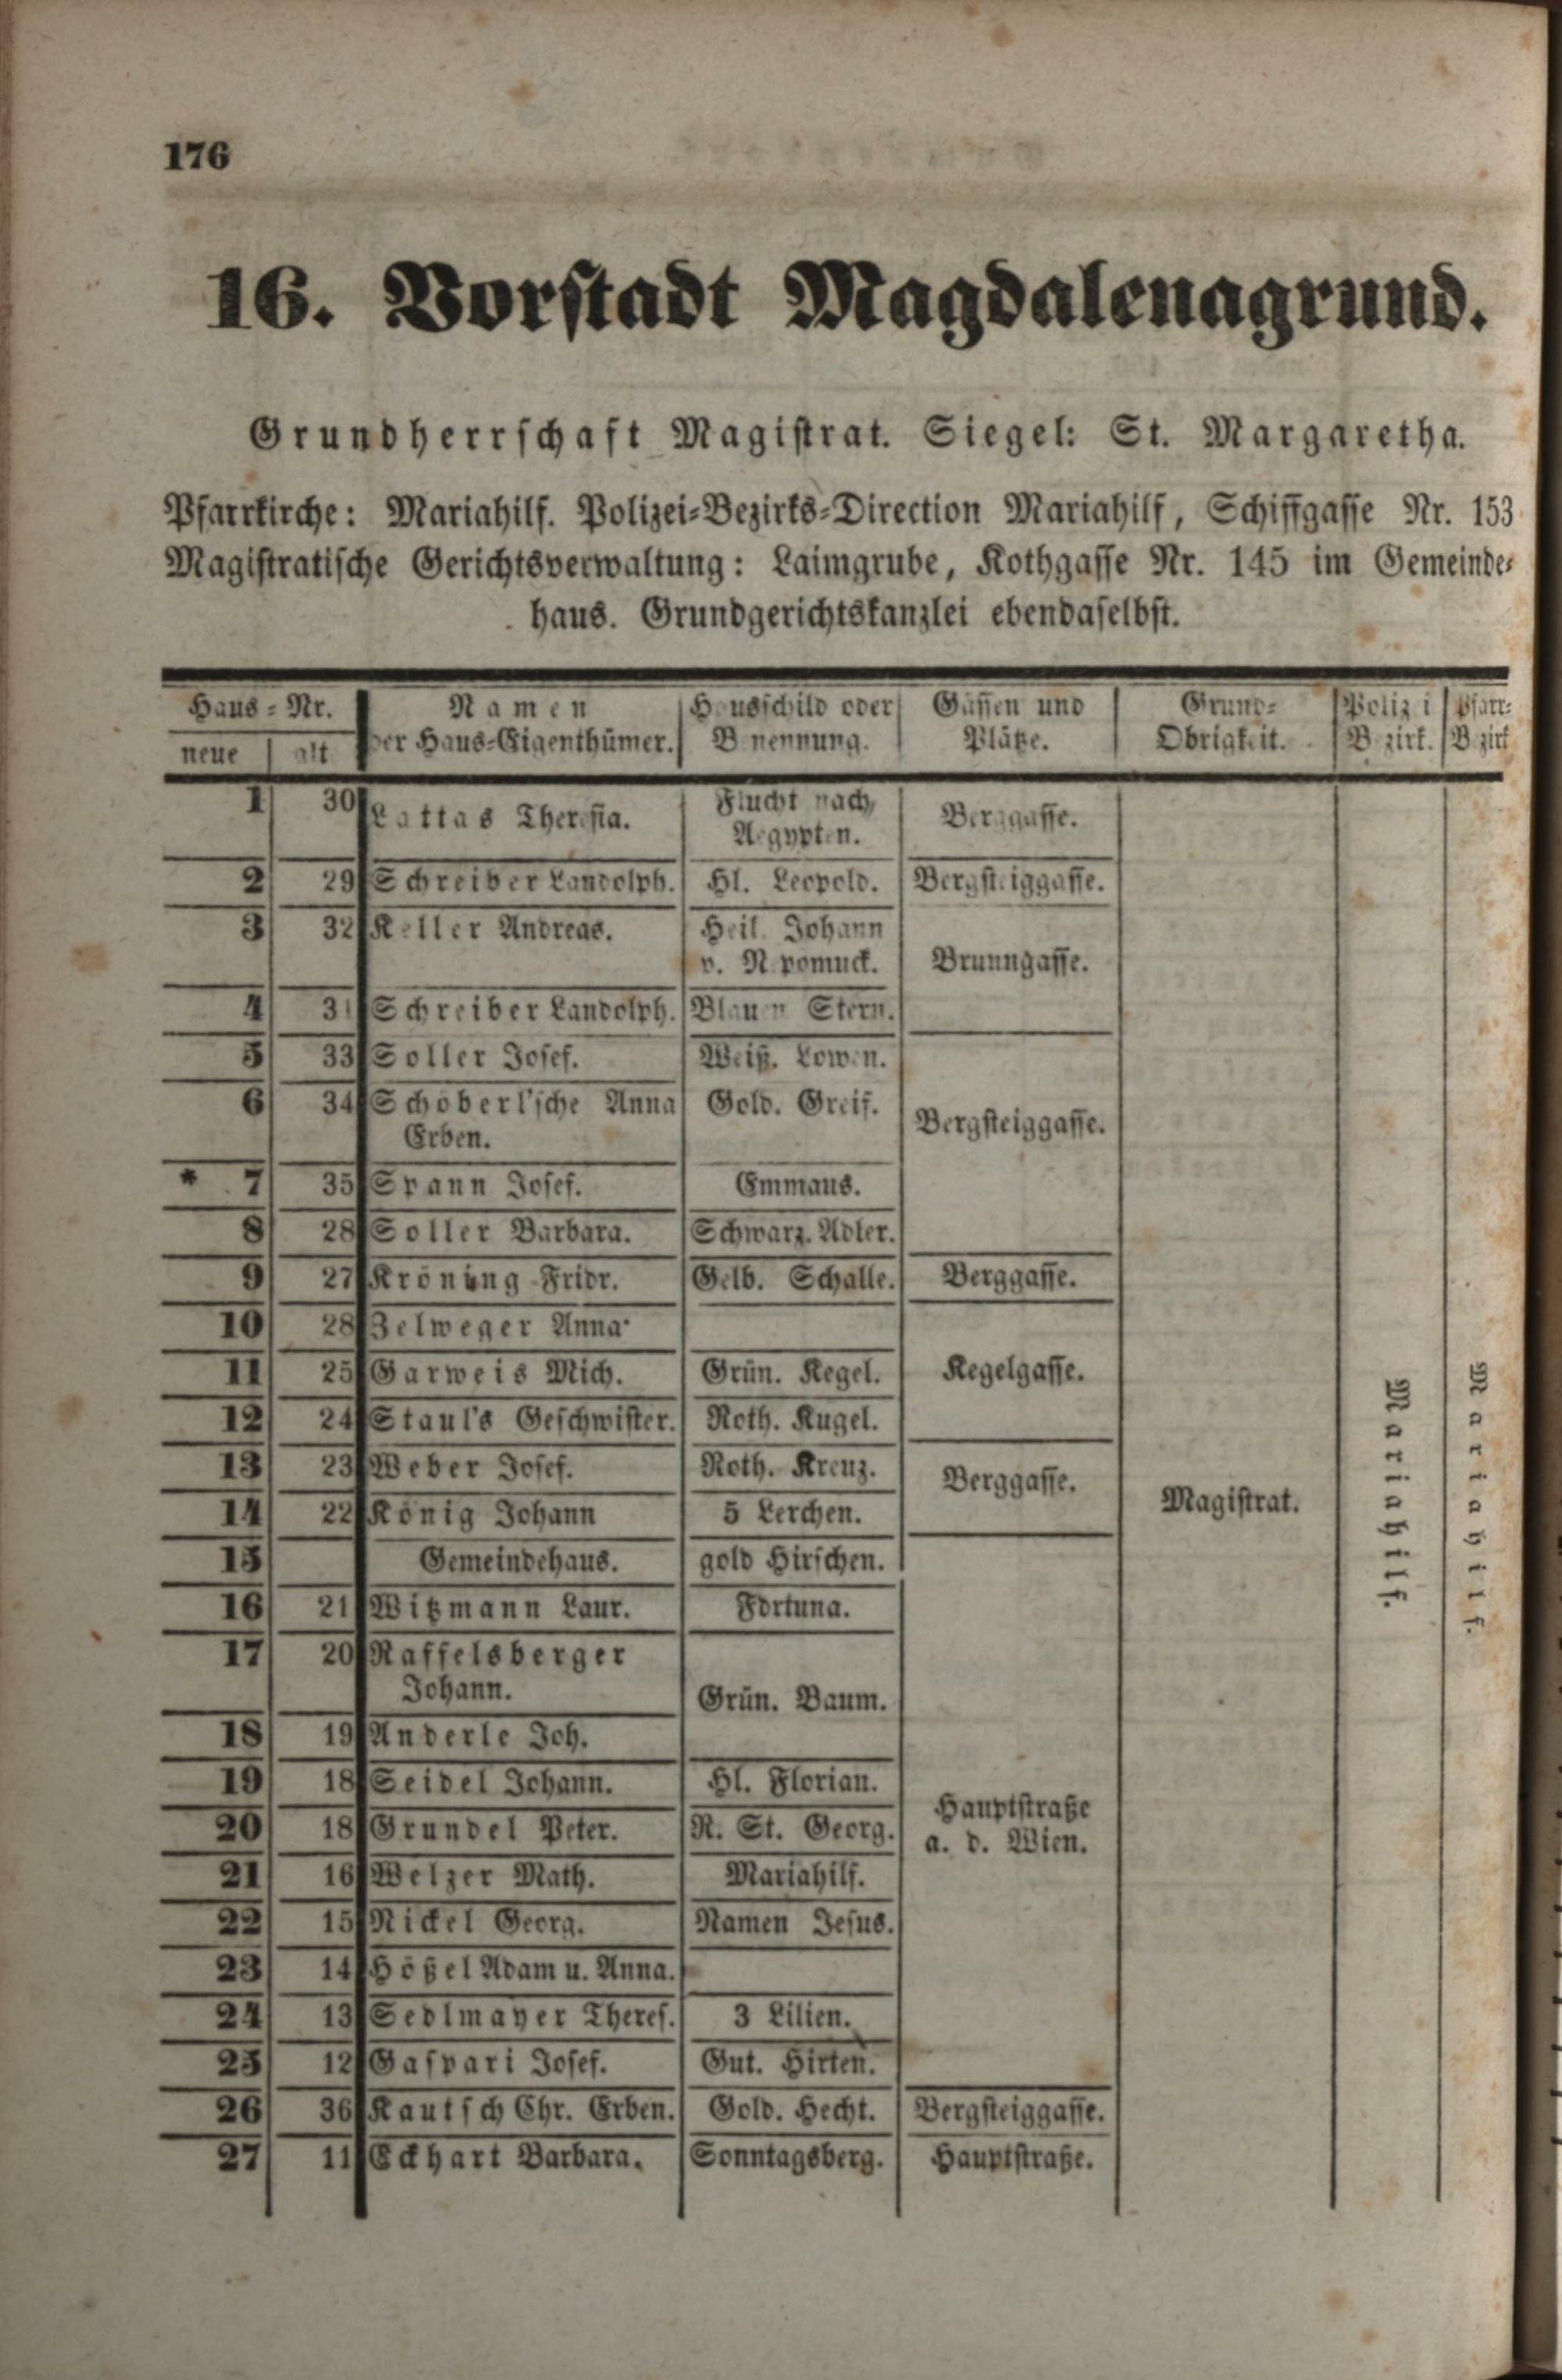 176
16. Vorstadt Magdalenagrund.
Grundherrschaft Magistrat. Siegel: St. Margaretha.
Pfarrkirche: Mariahilf. Polizei-Bezirks-Direction Mariahilf, Schiffgasse Nr. 153
Magistratische Gerichtsverwaltung: Laimgrube, Kothgasse Nr. 145 im Gemeinde-
haus. Grundgerichtskanzlei ebendaselbst.
Haus-Nr. Namen Hausschild oder Gassen und Grund- Polizei Pfarr-
neue alt der Haus-Eigenthümer. Benennung. Plätze. Obrigkeit. Bezirk. Bezirk
1 30 Lattas Theresia. Flucht nach Aegypten. Berggasse.
2 29 Schreiber Landolph. Hl. Leopold. Bergsteiggasse.
3 32 Keller Andreas. Heil. Johann
v. Nepomuck. Brunngasse.
4 31 Schreiber Landolph. Blauen Stern.
5 33 Soller Josef. Weiß. Löwen.
6 34 Schöberl'sche Anna Gold. Greif.
Erben. Bergsteiggasse.
* 7 35 Spann Josef. Emmaus.
8 28 Soller Barbara. Schwarz. Adler.
9 27 Kröning Fridr. Gelb. Schalle. Berggasse.
10 28 Zelweger Anna
11 25 Garweis Mich. Grün. Kegel. Kegelgasse.
12 24 Staul's Geschwister. Roth. Kugel.
13 23 Weber Josef. Roth. Kreuz. Berggasse.
14 22 König Johann 5 Lerchen. Magistrat. Mariahilf. Mariahilf.
15 Gemeindehaus. gold Hirschen.
16 21 Witzmann Laur. Fortuna.
17 20 Raffelsberger
Johann. Grün. Baum.
18 19 Anderle Joh.
19 18 Seidel Johann. Hl. Florian. Hauptstraße
20 18 Grundel Peter. R. St. Georg. a. d. Wien.
21 16 Welzer Math. Mariahilf.
22 15 Nickel Georg. Namen Jesus.
23 14 Hößel Adam u. Anna.
24 13 Sedlmayer Theres. 3 Lilien.
25 12 Gaspari Josef. Gut. Hirten.
26 36 Kautsch Chr. Erben. Gold. Hecht. Bergsteiggasse.
27 11 Eckhart Barbara. Sonntagsberg. Hauptstraße.